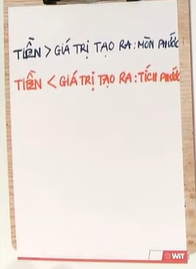 TIỀN > GIÁ TRỊ TẠO RA: MÒN PHƯỚC
TIỀN < GIÁ TRỊ TẠO RA: TÍCH PHƯỚC
WIT